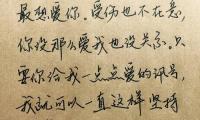 最想爱你。爱伤也不在意，
你没那么爱我也没关系。只
要你给我一点点爱的讯号，
我就可以一直这样坚持